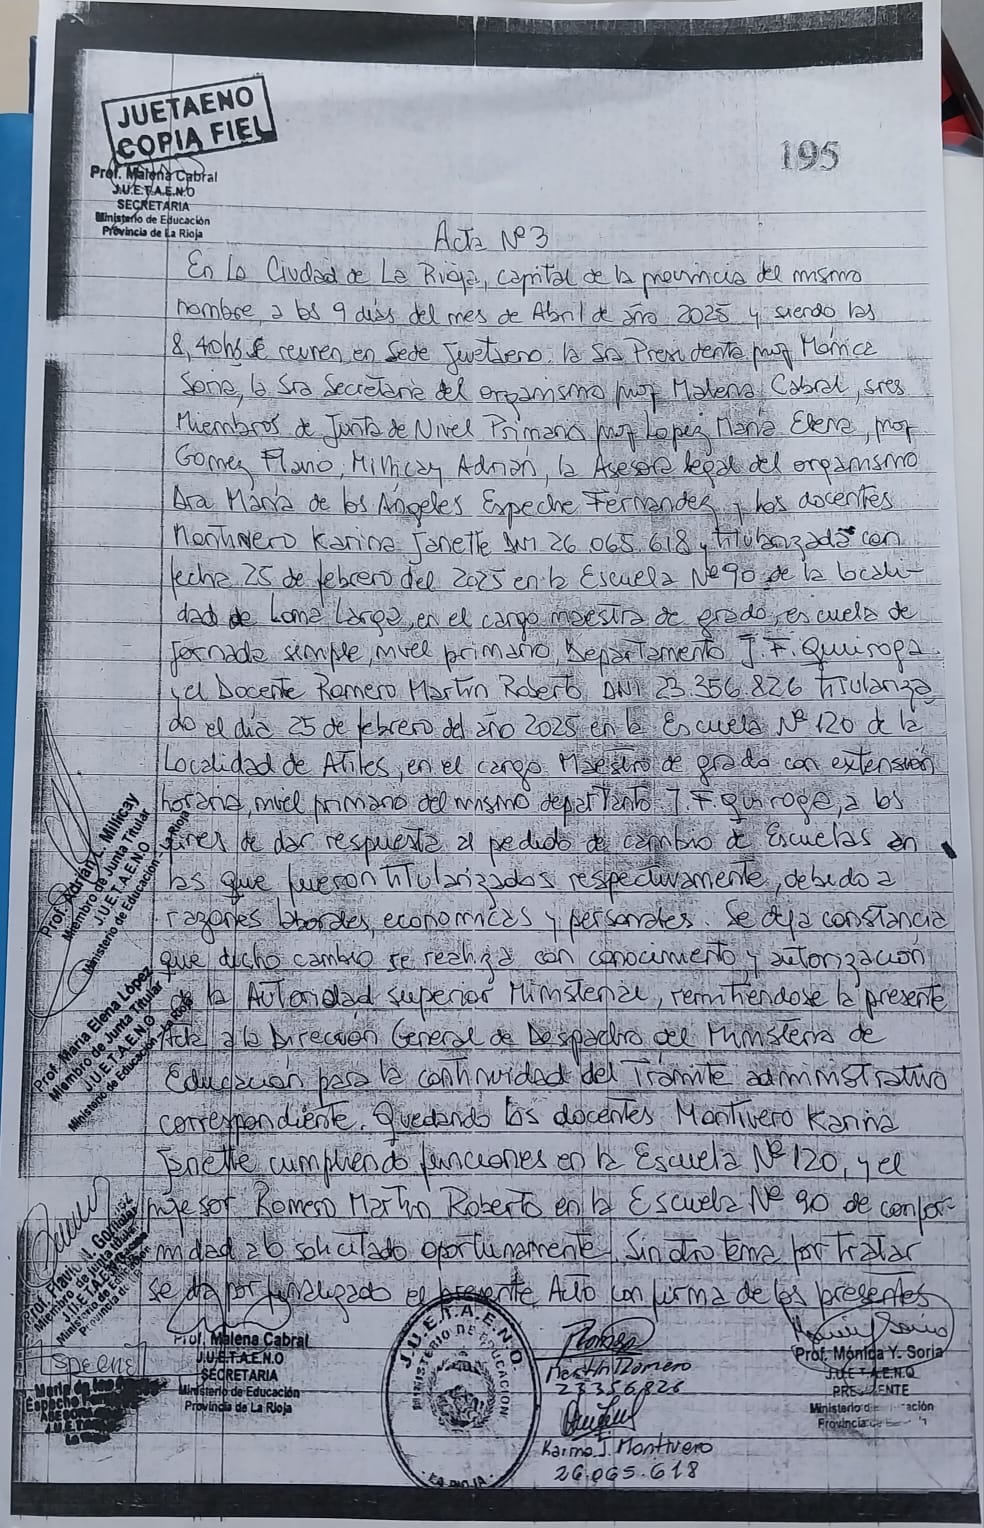 JUETAENO
COPIA FIEL
Prof. Malena Cabral
J.U.E.T.A.E.N.O
SECRETARIA
Ministerio de Educación
Provincia de La Rioja
195
Acta Nº 3
En la Ciudad de La Rioja, capital de la provincia del mismo
nombre, a los 9 días del mes de Abril de año 2025 y siendo las
8,40hs se reunen en Sede Juetaeno, la Sra Presidenta prof Mónica
Soria, la Sra Secretaria del organismo prof Malena Cabral, sres
Miembros de Junta de Nivel Primario prof Lopez María Elena, prof
Gomez Flavio, Millicay Adrián, la Asesora legal del organismo
Dra María de los Angeles Espeche Fernandez y los docentes
Montivero Karina Janette DNI 26.065.618, titularizada con
fecha 25 de febrero del 2025 en la Escuela Nº 90 de la locali-
dad de Loma Larga, en el cargo maestra de grado, escuela de
Jornada simple, nivel primario, Departamento J. F. Quiroga
y el Docente Romero Martín Roberto DNI 23.356.826 titulariza
do el día 25 de febrero del año 2025 en la Escuela Nº 120 de la
Localidad de Atiles, en el cargo Maestro de grado con extensión
horaria, nivel primario del mismo departanto J. F Quiroga, a los
fines de dar respuesta al pedido de cambio de Escuelas en
las que fueron titularizados respectivamente, debido a
razones laborales, economicas y personales. Se deja constancia
que dicho cambio se realiza con conocimiento y autorización
de la Autoridad superior Ministerial, remitiendose la presente
Acta a la Dirección General de Despacho del Ministerio de
Educación para la continuidad del Trámite administrativo
correspondiente. Quedando los docentes Montivero Karina
Janette cumpliendo funciones en la Escuela Nº 120, y el
profesor Romero Martín Roberto en la Escuela Nº 90 de confor-
midad a lo solicitado oportunamente. Sin otro tema por tratar
se da por finalizado el presente Acto con firma de los presentes
Prof. Adrián L. Millicay
Miembro de Junta Titular
J.U.E.T.A.E.N.O
Ministerio de Educación - La Rioja
Prof. Maria Elena López
Miembro de Junta Titular
J.U.E.T.A.E.N.O
Ministerio de Educación - La Rioja
Prof. Flavio N. Gomez
Miembro de Junta Titular
J.U.E.T.A.E.N.O
Ministerio de Educación
Provincia de
Espeche
Maria de los
Espeche
J.U.E.T.A
Prof. Malena Cabral
J.U.E.T.A.E.N.O
SECRETARIA
Ministerio de Educación
Provincia de La Rioja
J.U.E.T.A.E.N.O.
MINISTERIO DE EDUCACION
LA RIOJA
Romero
Martín Romero
23356826
Karina J. Montivero
26.065.618
Prof. Mónica Y. Soria
J.U.E.T.A.E.N.O
PRESIDENTE
Ministerio de Educación
Provincia de